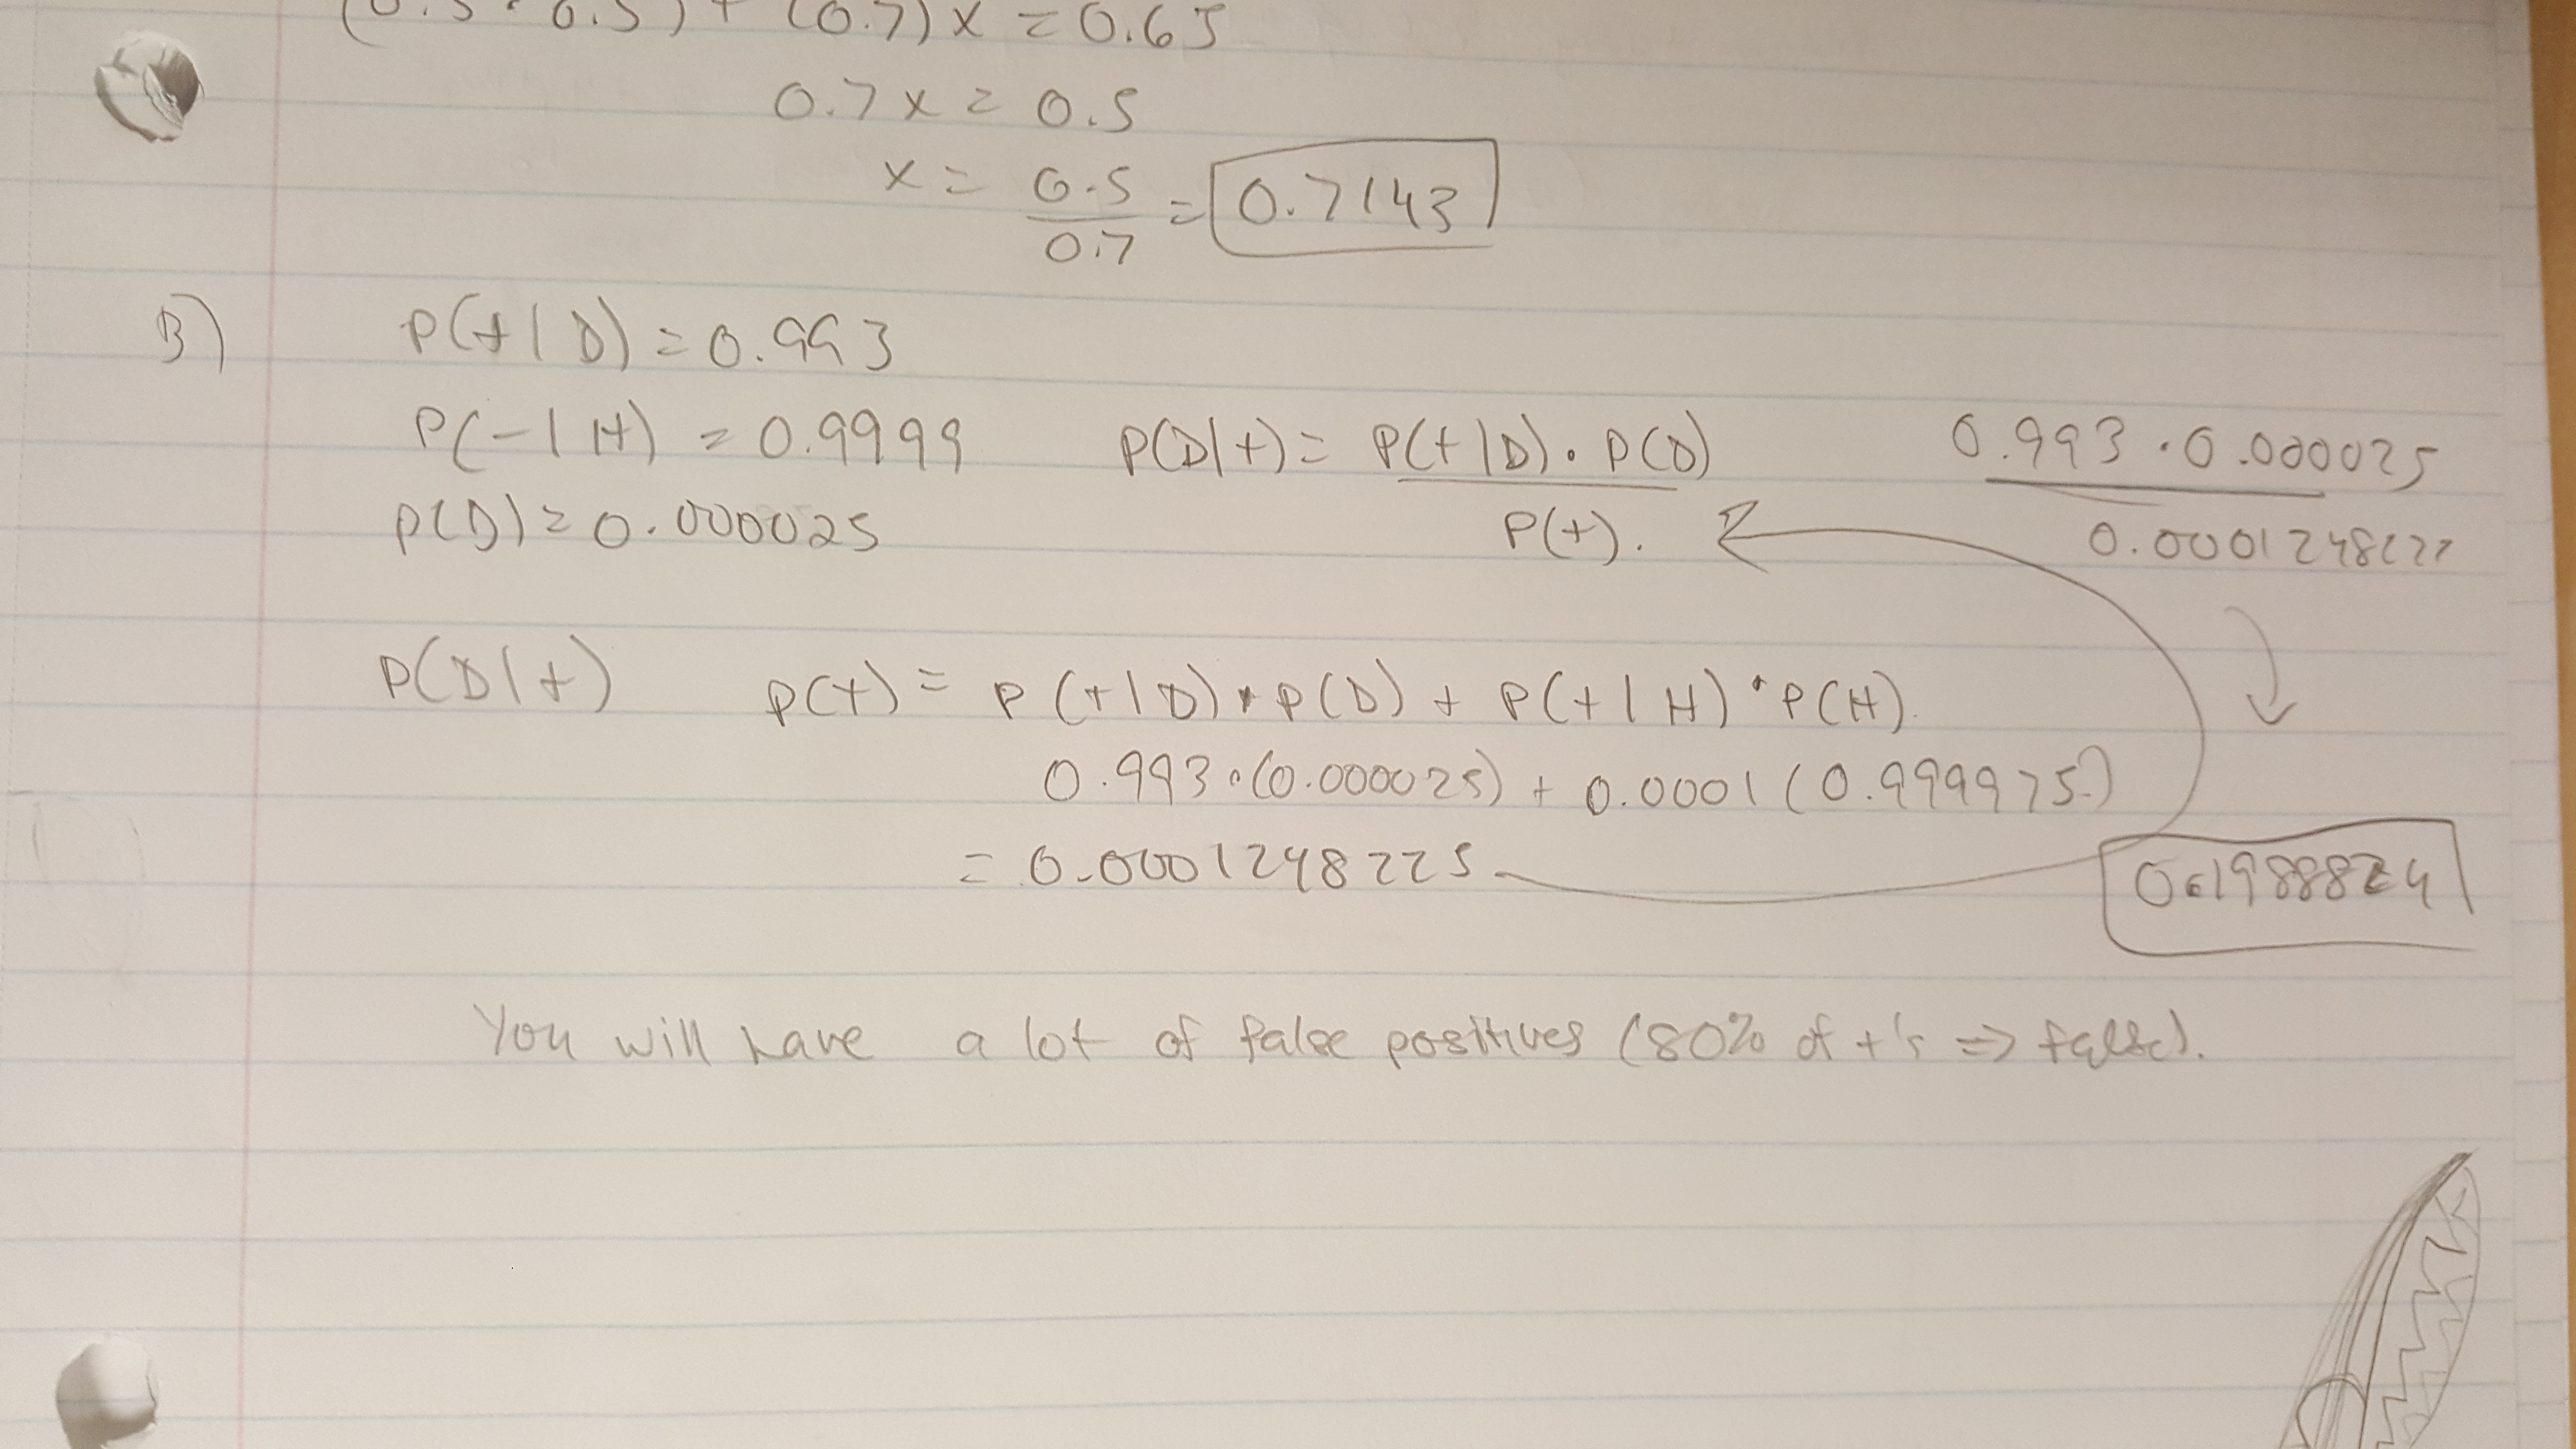 (0.5 · 0.3) + (0.7) x = 0.65
0.7 x = 0.5
x = 0.5 / 0.7 = 0.7143
B) P(+|D) = 0.993
P(-|H) = 0.9999 P(D|+) = P(+|D) · P(D) 0.993 · 0.000025
P(D) = 0.000025 P(+). 0.0001248222
P(D|+) P(+) = P(+|D) * P(D) + P(+|H) · P(H).
0.993 · (0.000025) + 0.0001 (0.999975)
= 0.0001248225 0.1988824
You will have a lot of false positives (80% of +'s => false).